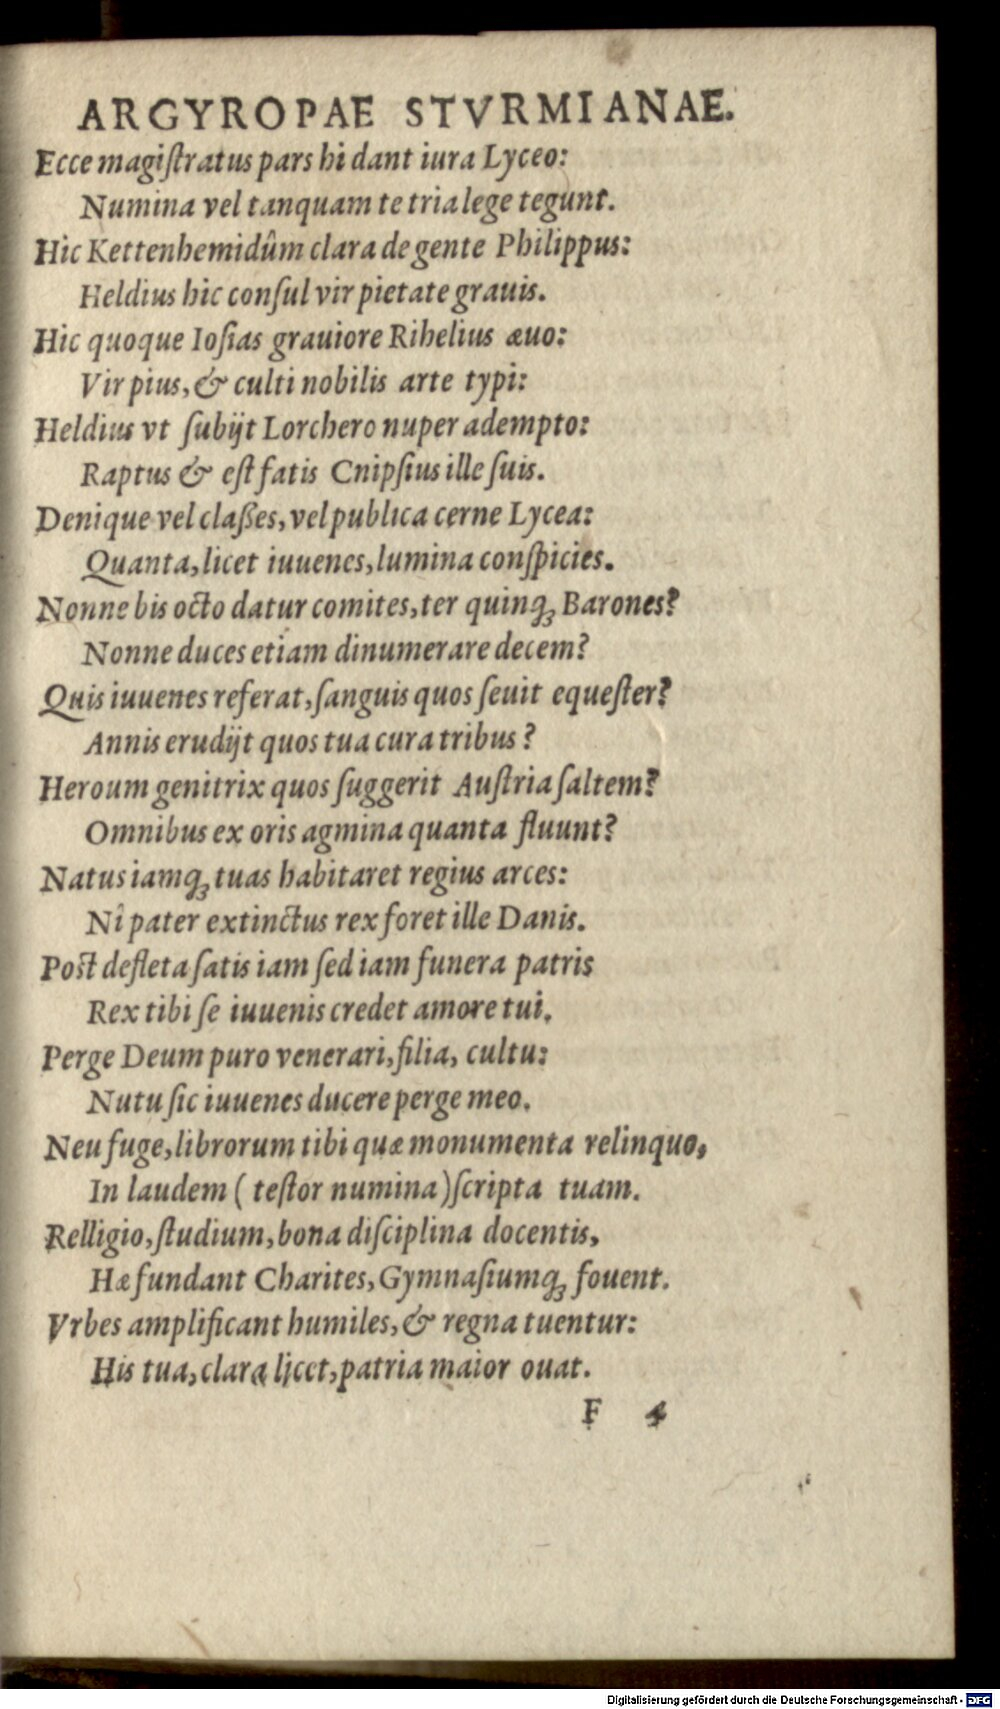 ARGYROPAE STVRMIANAE.
Ecce magiſtratus pars hi dant iura Lyceo:
Numina vel tanquam te tria lege tegunt.
Hic Kettenhemidûm clara de gente Philippus:
Heldius hic conſul vir pietate grauis.
Hic quoque Ioſias grauiore Rihelius æuo:
Vir pius, & culti nobilis arte typi:
Heldius vt ſubijt Lorchero nuper adempto:
Raptus & eſt fatis Cnipſius ille ſuis.
Denique vel claßes, vel publica cerne Lycea:
Quanta, licet iuuenes, lumina conſpicies.
Nonne bis octo datur comites, ter quinq; Barones?
Nonne duces etiam dinumerare decem?
Quis iuuenes referat, ſanguis quos ſeuit equeſter?
Annis erudijt quos tua cura tribus?
Heroum genitrix quos ſuggerit Auſtria ſaltem?
Omnibus ex oris agmina quanta fluunt?
Natus iamq; tuas habitaret regius arces:
Nî pater extinctus rex foret ille Danis.
Poſt defleta ſatis iam ſed iam funera patris
Rex tibi ſe iuuenis credet amore tui.
Perge Deum puro venerari, filia, cultu:
Nutu ſic iuuenes ducere perge meo.
Neu fuge, librorum tibi quæ monumenta relinquo,
In laudem ( teſtor numina) ſcripta tuam.
Relligio, ſtudium, bona diſciplina docentis,
Hæ fundant Charites, Gymnaſiumq; fouent.
Vrbes amplificant humiles, & regna tuentur:
His tua, clara licet, patria maior ouat.
F 4
Digitalisierung gefördert durch die Deutsche Forschungsgemeinschaft - DFG